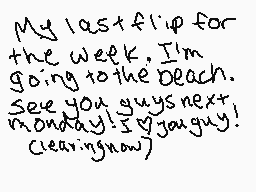 My last flip for
the week. I'm
going to the beach.
see you guys next
monday! I ♡ you guy!
(clearing now)